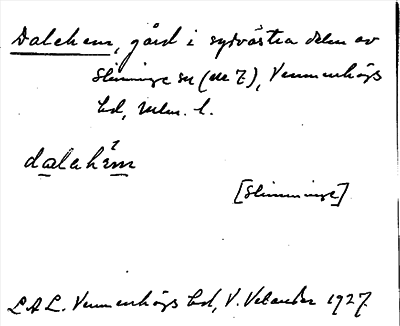 Dalehem, gård i sydvästra delen av
Slimminge sn (nr 7), Vemmenhögs
hd, Mlm. l.
dalahem
[Slimminge]
L.A.L. Vemmenhögs hd, V. Velander 1927.